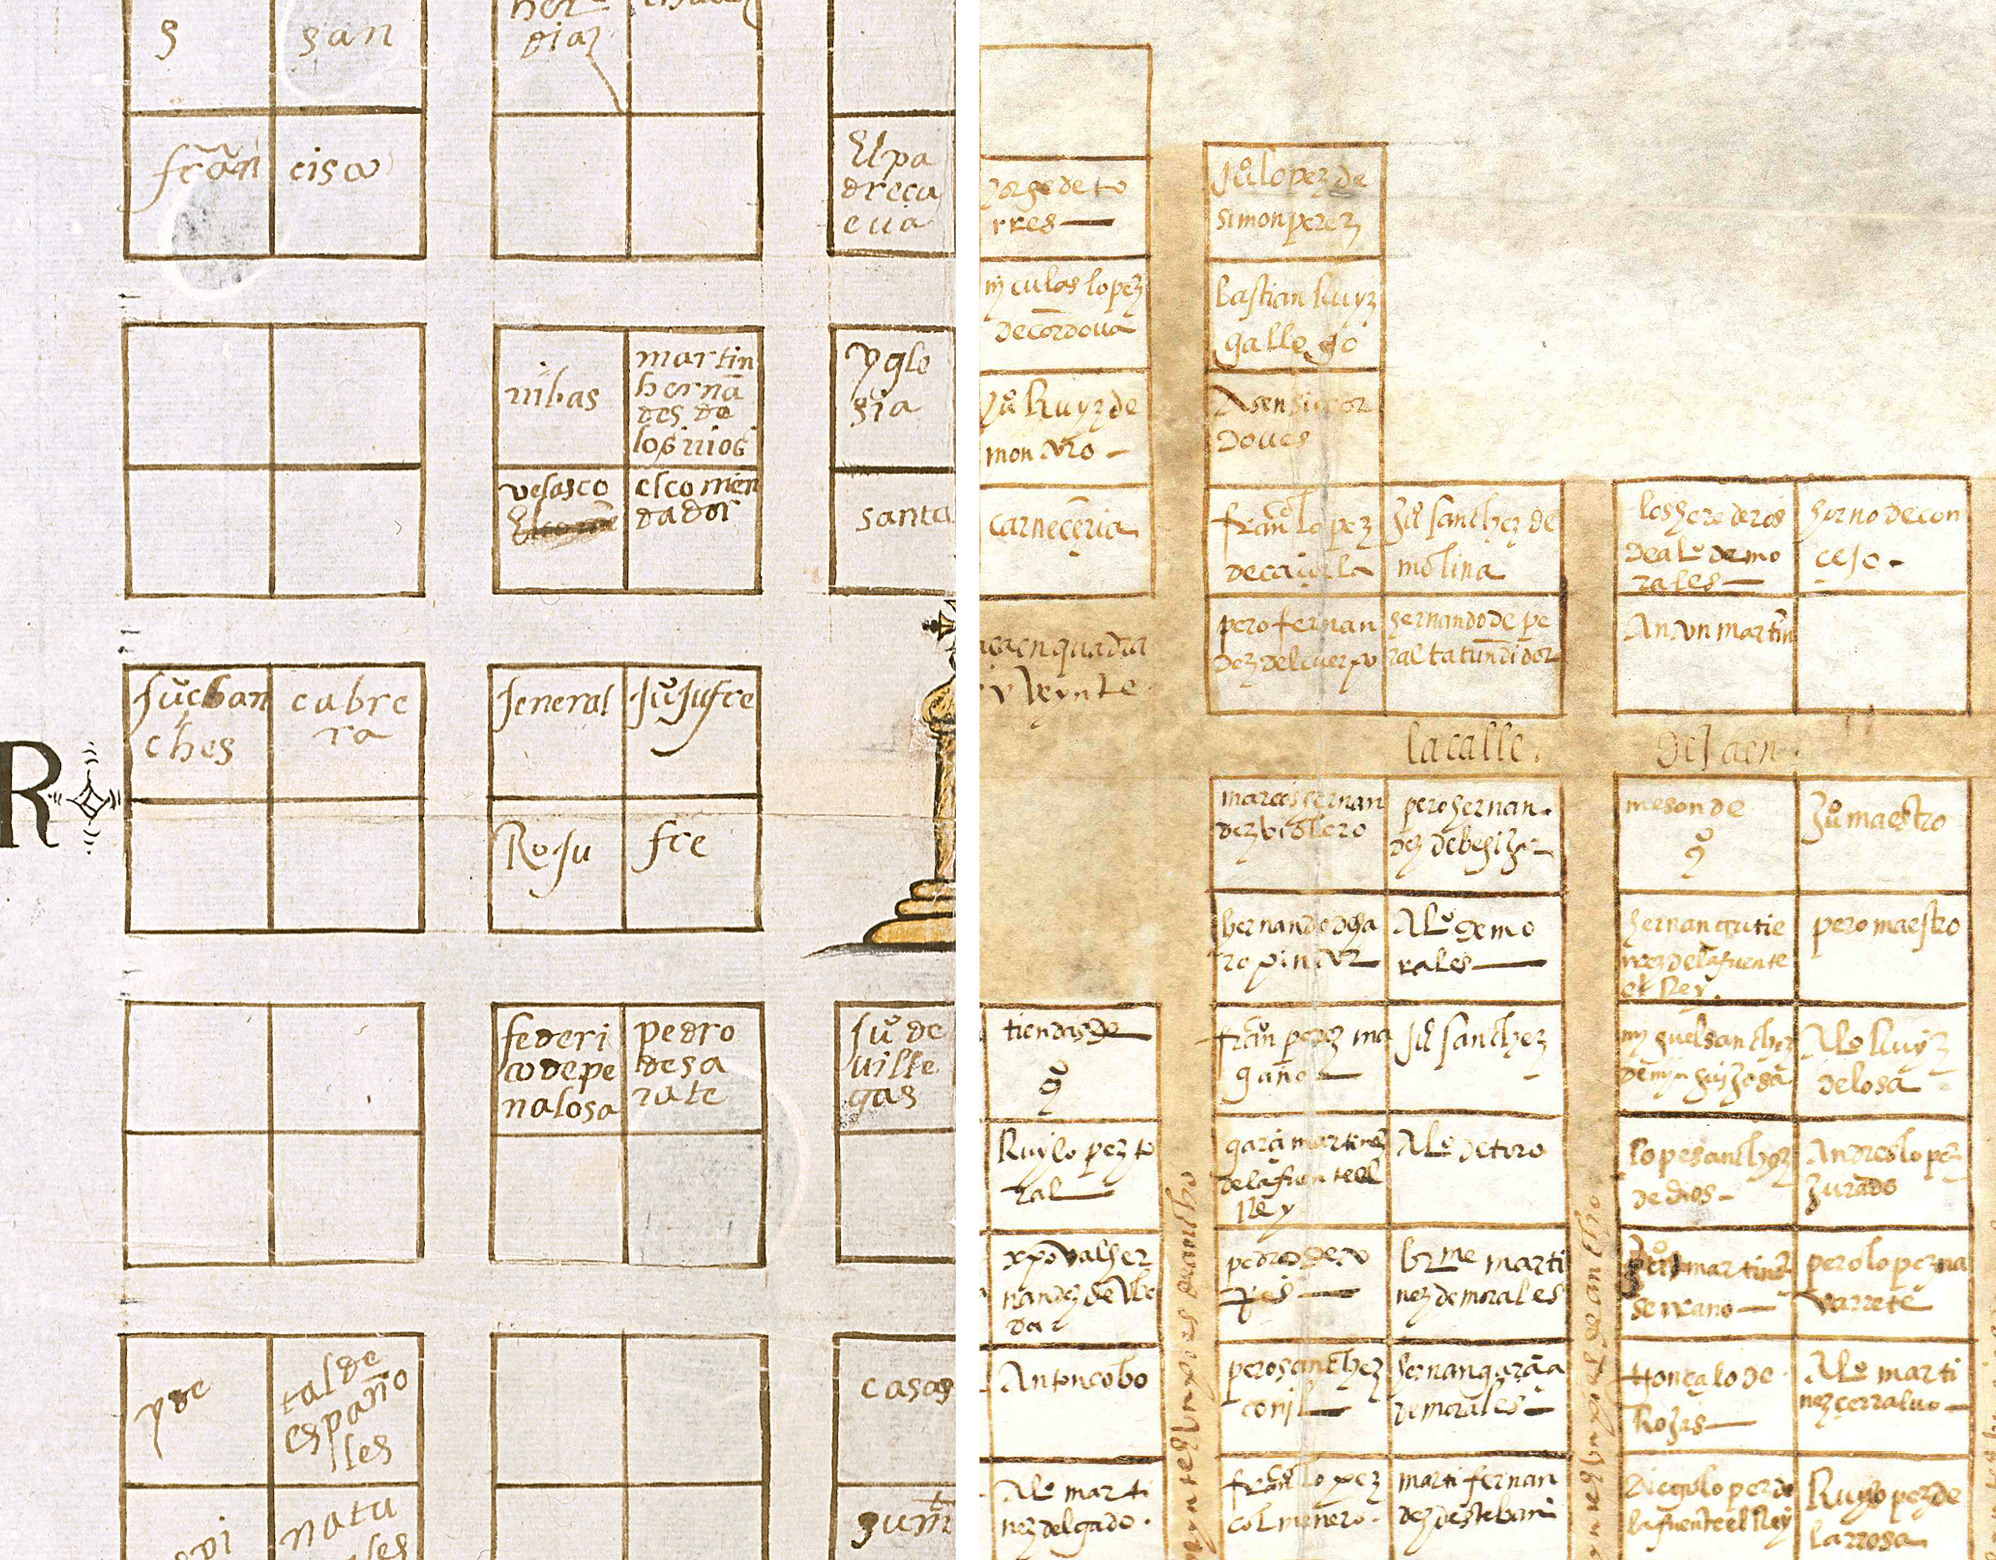 S
san
fran
cisco
her
diaz
El pa
dre ça
cua
ribas
martin
herna
des de
los rrios
velasco
el comen
dador
ygle
sia
santa
Ju sban
ches
cabre
ra
jeneral
Ju Jufre
Ro Ju
fre
R
federi
co de pe
nalosa
pedro
de sa
rate
Ju de
ville
gas
tal de
españo
les
casas
natu
ales
Jorge de to
rres
nyculas lopez
de cordoua
Ju Ruyz de
montoro
carneceria
Ju lopez de
simon perez
bastian Ruyz
gallego
Asensio cor
doues
fran co lopez
de caçorla
Ju sanchez de
molina
pero fernan
dez del cuerpo
hernando de pe
ralta tundidor
los herederos
de alo de mo
rales
horno de con
cejo
Anton martin
en quadra
y veynte
la calle
de Jaen
marcos hernan
dez violero
pero hernan
dez
meson de
Ju maestro
hernando de ha
ro pintor
Alo de mo
rales
hernan gutie
rrez de la fuente
el Rey
pero maestro
tiendas de
fran perez ma
gaña
Ju sanchez
myguel sanchez
Alo Ruyz
de losa
Ruy lopez to
ral
garci martinez
de la fuente el
Rey
Alo de toro
lope sanchez
de dios
Andres lopez
Jurado
xpoval her
nandez de Vbe
da
pedro de Ro
bme marti
nez de morales
martinez
serrano
pero lopez na
varrete
Anton cobo
pero sanchez
conil
hernan garcia
de morales
Gonçalo de
Rojas
Alo marti
nez cerraluo
Alo marti
nez delgado
fran co lopez
colmenero
marti fernan
dez de esteban
Diego lopez de
la fuente el Rey
Ruy lopez de
la rrosa